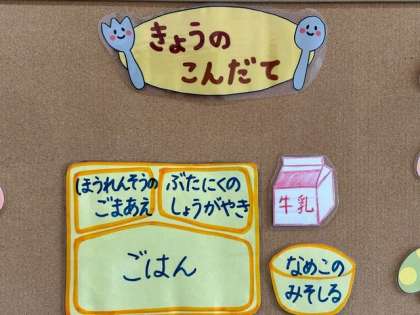 きょうの
こんだて
ほうれんそうの
ごまあえ
ぶたにくの
しょうがやき
牛乳
ごはん
なめこの
みそしる